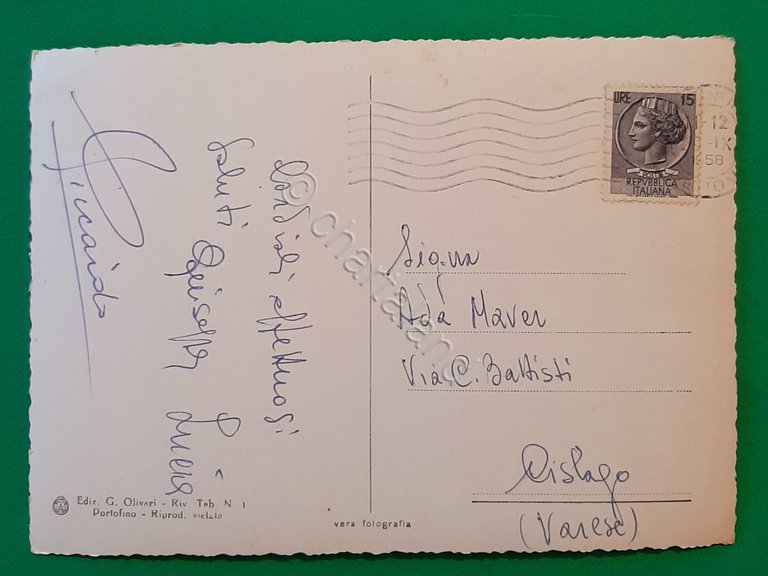 Cordiali affettuosi
saluti Giuseppe Luciano
Riccardo
Ediz. G. Olivari - Riv. Tab. N 1
Portofino - Riprod. vietata
vera fotografia
LIRE 15
REPVBBLICA
ITALIANA
12
IX
58
Sig.na
Ada Maver
Via C. Battisti
Cislago
(Varese)